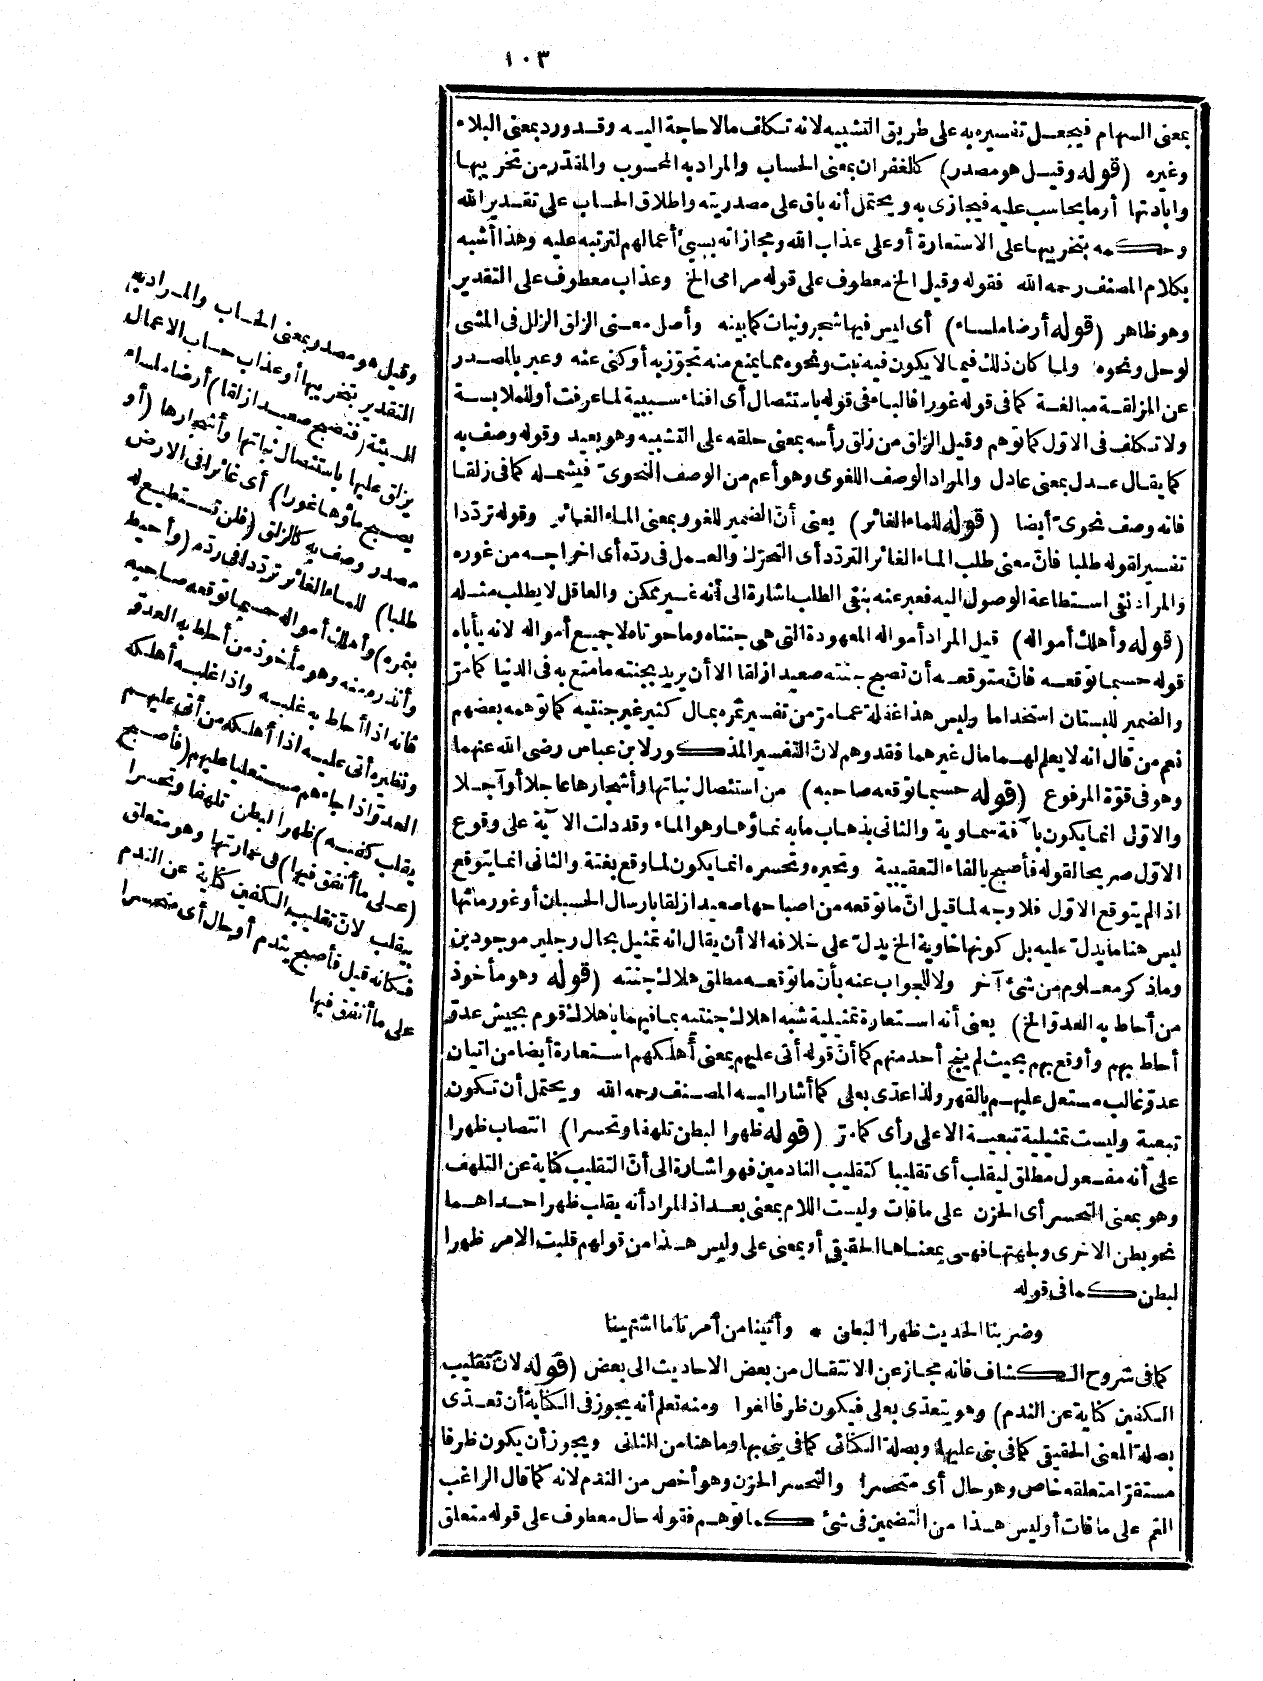 ١٠٣
بمعنى السهام فيجعل تفسيره به على طريق التشبيه لانه تكلف مالا حاجة اليه وقد ورد بمعنى البلاء
وغيره (قوله وقيل هو مصدر) كالغفران بمعنى الحساب والمراد به المحسوب والمقدر من تخريبها
وابادتها أو ما يحاسب عليه فيجازى به ويحتمل أنه باق على مصدريته واطلاق الحساب على تقدير الله
وحكمه بتخريبها على الاستعارة أو على عذاب الله ومجازاته بسيئ أعمالهم لترتبه عليه وهذا أشبه
بكلام المصنف رحمه الله فقوله وقيل الخ معطوف على قوله مرامى الخ وعذاب معطوف على التقدير
وهو ظاهر (قوله أرضا ملساء) أى ليس فيها شجر ونبات كما بينه وأصل معنى الزلق الزلل فى المشى
لوحل ونحوه ولما كان ذلك فيما لا يكون فيه نبت ونحوه مما يمنع منه تجوز به أو كنى عنه وعبر بالمصدر
عن المزلقة مبالغة كما فى قوله غورا فالباء فى قوله باستئصال أى افناء سببية لما عرفت أو للملابسة
ولا تكلف فى الاول كما توهم وقيل الزلق من زلق رأسه بمعنى حلقه على التشبيه وهو بعيد وقوله وصف به
كما يقال عدل بمعنى عادل والمراد الوصف اللغوى وهو أعم من الوصف النحوىّ فيشمله كما فى زلقا
فانه وصف نحوىّ أيضا (قوله للماء الغائر) يعنى أنّ الضمير للغور بمعنى الماء الغائر وقوله تردّدا
تفسير لقوله طلبا فانّ معنى طلب الماء الغائر التردّد أى التحرّك والعمل فى ردّه أى اخراجه من غوره
والمراد نفى استطاعة الوصول اليه فعبر عنه بنفى الطلب اشارة الى أنه غير ممكن والعاقل لا يطلب مثله
(قوله وأهلك أمواله) قيل المراد أمواله المعهودة التى هى جنتاه وما حوتا لا جميع أمواله لانه يأباه
قوله حسبما توقعه فانّ متوقعه أن تصبح جنته صعيدا زلقا الا أن يريد بجنته ما متع به فى الدنيا كما مرّ
والضمير للبستان استخداما وليس هذا غفلة عما مرّ من تفسير ثمره بمال كثير غير جنتيه كما توهمه بعضهم
نعم من قال انه لا يعلم لهما مال غيرهما فقد وهم لانّ التفسير المذكور لابن عباس رضى الله عنهما
وهو فى قوّة المرفوع (قوله حسبما توقعه صاحبه) من استئصال نباتها وأشجارها عاجلا أو آجلا
والاول انما يكون بآفة سماوية والثانى بذهاب ما به نماؤها وهو الماء وقد دلت الآية على وقوع
الاوّل صريحا لقوله فأصبح بالفاء التعقيبية وتحيره وتحسره انما يكون لما وقع بغتة والثانى انما يتوقع
اذا لم يتوقع الاول فلا وجه لما قيل انّ ما توقعه من اصباحها صعيدا زلقا بارسال الحسبان أو غور مائها
ليس هنا ما يدلّ عليه بل كونها خاوية الخ يدلّ على خلافه الا أن يقال انه تمثيل بحال رجلين موجودين
وما ذكر معلوم من شئ آخر ولا للجواب عنه بأنّ ما توقعه مطلق هلاك جنته (قوله وهو مأخوذ
من أحاط به العدوّ الخ) يعنى أنه استعارة تمثيلية شبه اهلاك جنتيه بما فيهما باهلاك قوم بجيش عدوّ
أحاط بهم وأوقع بهم بحيث لم ينج أحد منهم كما أنّ قوله أتى عليهم بمعنى أهلكهم استعارة أيضا من اتيان
عدوّ غالب مستعل عليهم بالقهر ولذا عدى بعلى كما أشار اليه المصنف رحمه الله ويحتمل أن تكون
تبعية وليست تمثيلية تبعية الا على رأى كما مرّ (قوله ظهرا لبطن تلهفا وتحسرا) انتصاب ظهرا
على أنه مفعول مطلق ليقلب أى تقليبا كتقليب النادمين فهو اشارة الى أنّ التقليب كناية عن التلهف
وهو بمعنى التحسر أى الحزن على ما فات وليست اللام بمعنى بعد اذ المراد أنه يقلب ظهر احداهما
نحو بطن الاخرى ولجهتها فهى بمعناها الحقيقى أو بمعنى على وليس هذا من قولهم قلبت الامر ظهرا
لبطن كما فى قوله
وضربنا الحديث ظهرا لبطن * وأتينا من أمرنا ما اشتهينا
كما فى شروح الكشاف فانه مجاز عن الانتقال من بعض الاحاديث الى بعض (قوله لانّ تقليب
الكفين كناية عن الندم) وهو يتعدّى بعلى فيكون ظرفا لغوا ومنه تعلم أنه يجوز فى الكناية أن تعدّى
بصلة المعنى الحقيقى كما فى بنى عليها وبصلة الكنائى كما فى بنى بها وما هنا من الثانى ويجوز أن يكون ظرفا
مستقرّا متعلقه خاص وهو حال أى متحسرا والتحسر الحزن وهو أخص من الندم لانه كما قال الراغب
الغم على ما فات أو ليس هذا من التضمين فى شئ كما توهم فقوله حال معطوف على قوله متعلق
وقيل هو مصدر بمعنى الحساب والمراد به
التقدير بتخريبها أو عذاب حساب الاعمال
السيئة (فتصبح صعيدا زلقا) أرضا ملساء
يزلق عليها باستئصال نباتها وأشجارها (أو
يصبح ماؤها غورا) أى غائرا فى الارض
مصدر وصف به كالزلق (فلن تستطيع له
طلبا) للماء الغائر تردّدا فى ردّه (وأحيط
بثمره) وأهلك أمواله حسبما توقعه صاحبه
وأنذره منه وهو مأخوذ من أحاط به العدوّ
فانه اذا أحاط به غلبه واذا غلبه أهلكه
ونظيره أتى عليه اذا أهلكه من أتى عليهم
العدوّ اذا جاءهم مستعليا عليهم (فأصبح
يقلب كفيه) ظهرا لبطن تلهفا وتحسرا
(على ما أنفق فيها) فى عمارتها وهو متعلق
بيقلب لانّ تقليب الكفين كناية عن الندم
فكانه قيل فأصبح يندم أو حال أى متحسرا
على ما أنفق فيها